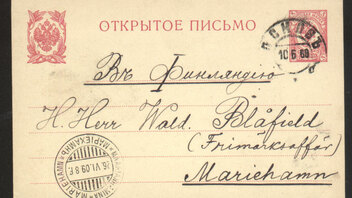 ОТКРЫТОЕ ПИСЬМО
10 6 09
Въ Финляндію
H. Herr Wald. Blåfield
(Frimärksaffär)
Mariehamn
MARIEHAMN
МАРІЕХАМНЪ
26.VI.09 8 F.